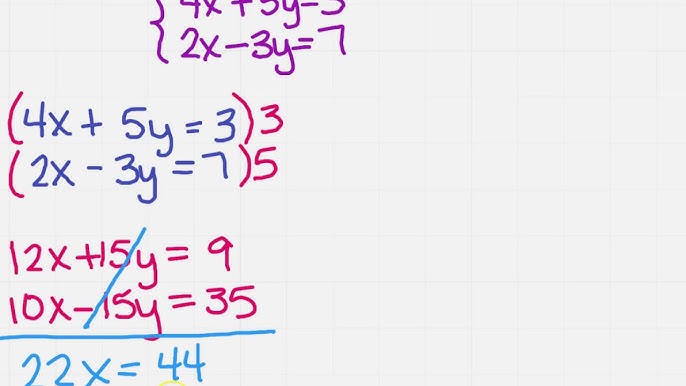 4x+5y=3
2x-3y=7
(4x+5y=3)3
(2x-3y=7)5
12x+15y=9
10x-15y=35
22x=44